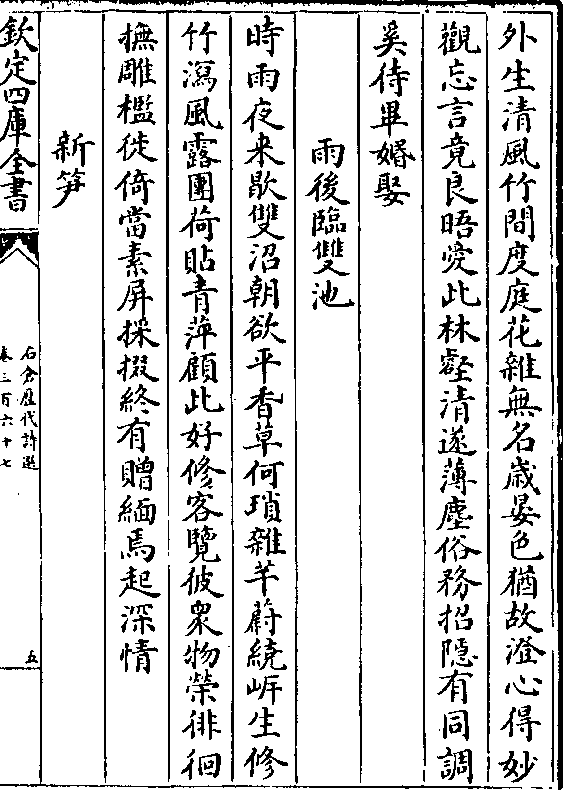 外生清風竹間度庭花雜無名歲晏色猶故澄心得妙
觀忘言竟良晤愛此林壑清遂薄塵俗務招隱有同調
奚待畢婚娶
雨後臨雙池
時雨夜来歇雙沼朝欲平香草何瑣雜芊蔚繞岸生修
竹瀉風露團荷貼青萍顧此好修客覽彼衆物榮徘徊
撫雕檻徙倚當素屏採掇終有贈緬焉起深情
新笋
欽定四庫全書
石倉歷代詩選
卷三百六十七
五